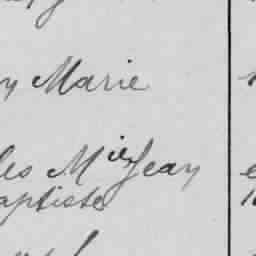 y Marie
les Mie Jean
aptiste